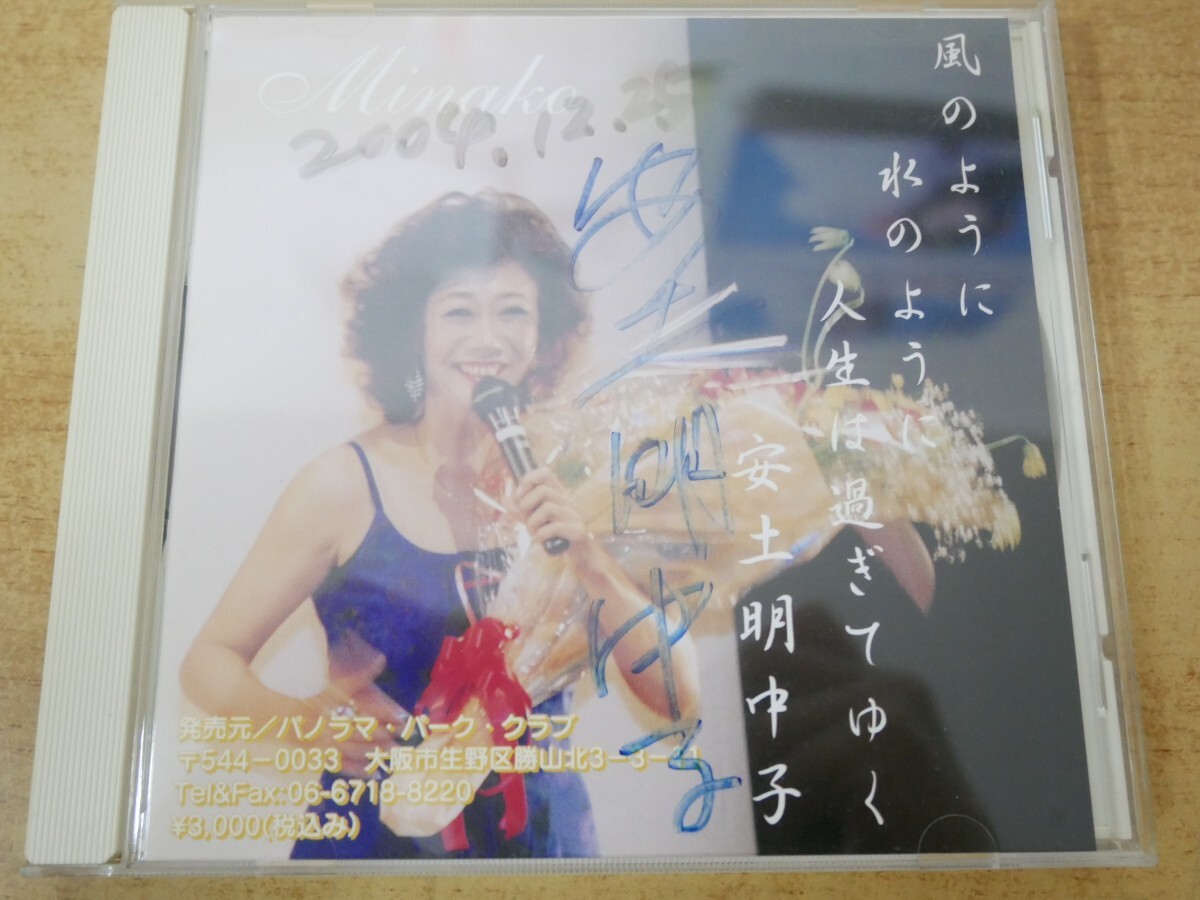 Minako
2004.12.25
風のように
水のように
人生は過ぎてゆく
安土明中子
安土明中子
発売元／パノラマ・パーク・クラブ
〒544－0033　大阪市生野区勝山北3－3－21
Tel&Fax:06-6718-8220
¥3,000(税込み)